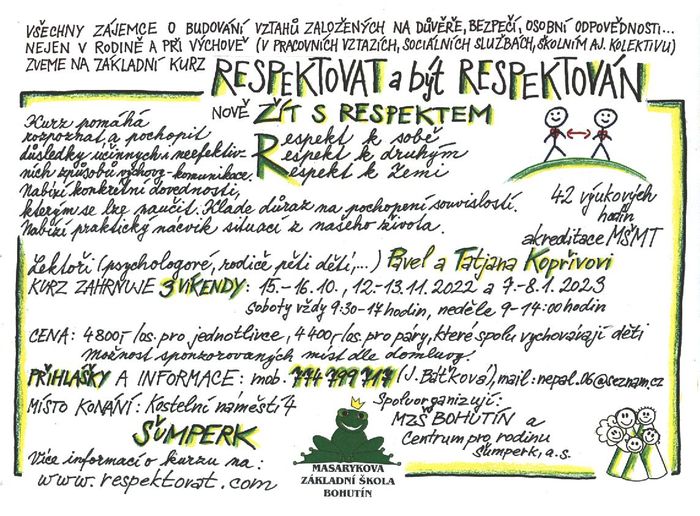 VŠECHNY ZÁJEMCE O BUDOVÁNÍ VZTAHŮ ZALOŽENÝCH NA DŮVĚŘE, BEZPEČÍ, OSOBNÍ ODPOVĚDNOSTI...
NEJEN V RODINĚ A PŘI VÝCHOVĚ (V PRACOVNÍCH VZTAZÍCH, SOCIÁLNÍCH SLUŽBÁCH, ŠKOLNÍM AJ. KOLEKTIVU)
ZVEME NA ZÁKLADNÍ KURZ RESPEKTOVAT a být RESPEKTOVÁN
NOVĚ ŽÍT S RESPEKTEM
Respekt k sobě
Respekt k druhým
Respekt k Zemi
Kurz pomáhá
rozpoznat a pochopit
důsledky účinných a neefektiv-
ních způsobů výchovy-komunikace.
Nabízí konkrétní dovednosti,
kterým se lze naučit. Klade důraz na pochopení souvislostí.
Nabízí praktický nácvik situací z našeho života.
42 výukových
hodin
akreditace MŠMT
Lektoři (psychologové, rodiče pěti dětí,...) Pavel a Tatjana Kopřivovi
KURZ ZAHRNUJE 3 VÍKENDY: 15.-16.10., 12.-13.11.2022 a 7.-8.1.2023
Soboty vždy 9:30-17 hodin, neděle 9-14:00 hodin
CENA: 4800,-/os. pro jednotlivce, 4400,-/os. pro páry, které spolu vychovávají děti
Možnost sponzorovaných míst dle domluvy.
PŘIHLÁŠKY A INFORMACE: mob. 774 799 717 (J. Báťková), mail: nepal.06@seznam.cz
MÍSTO KONÁNÍ: Kostelní náměstí 4
ŠUMPERK
Spoluorganizují:
MZŠ BOHUTÍN a
Centrum pro rodinu
Šumperk, a.s.
Více informací o kurzu na:
www.respektovat.com
MASARYKOVA
ZÁKLADNÍ ŠKOLA
BOHUTÍN